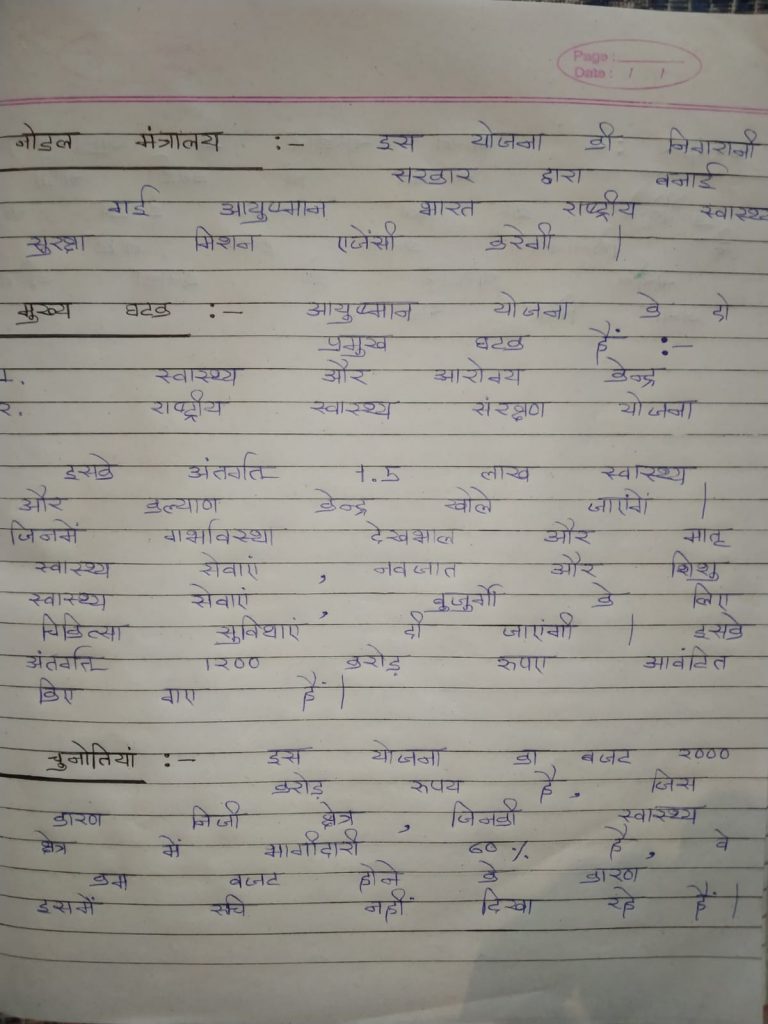 Page :
Date : / /
नोडल मंत्रालय :- इस योजना की निगरानी
सरकार द्वारा बनाई
गई आयुष्मान भारत राष्ट्रीय स्वास्थ्य
सुरक्षा मिशन एजेंसी करेगी |
मुख्य घटक :- आयुष्मान योजना के दो
प्रमुख घटक हैं :-
1. स्वास्थ्य और आरोग्य केन्द्र
2. राष्ट्रीय स्वास्थ्य संरक्षण योजना
इसके अंतर्गत 1.5 लाख स्वास्थ्य
और कल्याण केन्द्र खोले जाएंगें |
जिनमें गर्भावस्था देखभाल और मातृ
स्वास्थ्य सेवाएं , नवजात और शिशु
स्वास्थ्य सेवाएं , बुजुर्गों के लिए
चिकित्सा सुविधाएं दी जाएंगी | इसके
अंतर्गत 1200 करोड़ रूपए आवंटित
किए गए हैं |
चुनोतियां :- इस योजना का बजट २000
करोड़ रूपय है , जिस
कारण निजी क्षेत्र , जिनकी स्वास्थ्य
क्षेत्र में भागीदारी 60 % है , वे
कम बजट होने के कारण
इसमें रूचि नहीं दिखा रहे हैं |